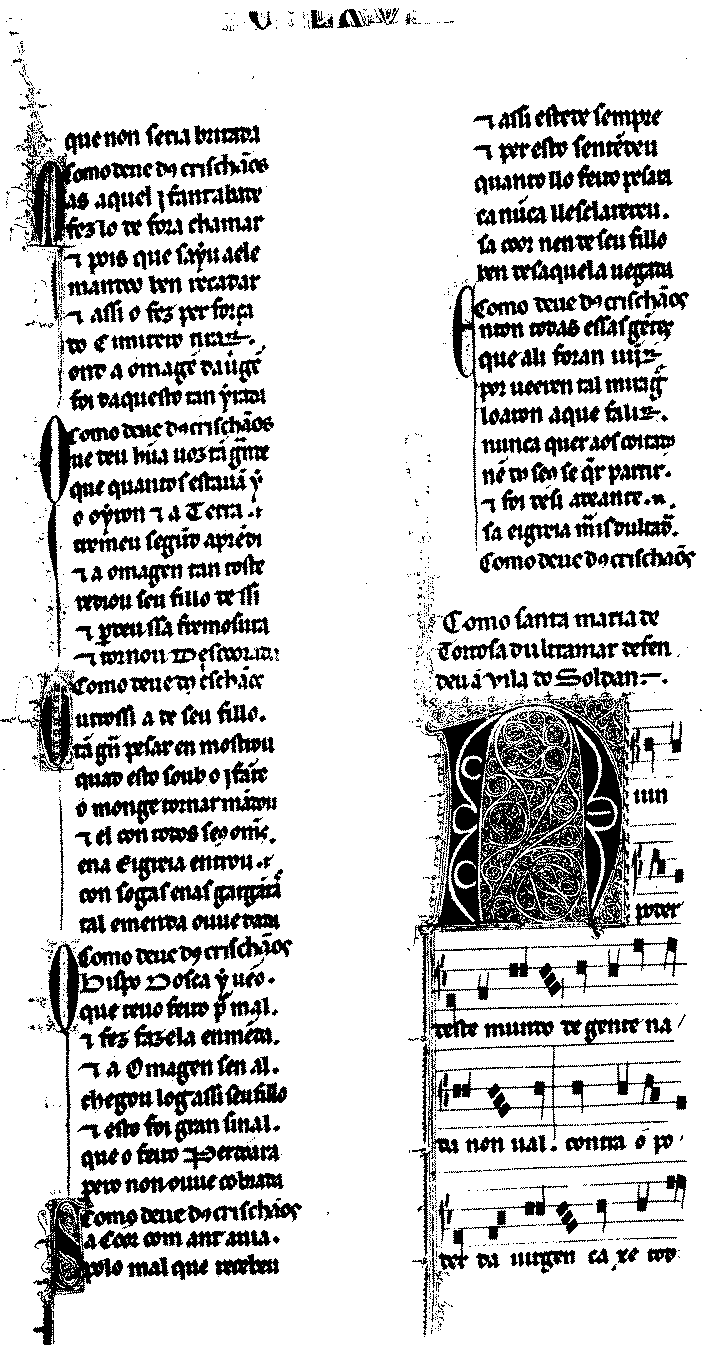 que non seria britada
Como deue dos crischãos
Mas aquel jfant alaue
fez lo de fora chamar
⁊ pois que sayu a ele
mandoo ben recadar
⁊ assi o fez per força
do Cimiterio tirar.
onde a omagẽ da uirgẽ
foi daquesto tan yrada
Como deue dos crischãos
Que deu hũa uoz tã grãde
que quantos estauã y
o oyron ⁊ a Terra
tremeu segũdo aprẽdi
⁊ a omagen tan toste
redrou seu fillo de ssi
⁊ perdeu ssa fremosura
⁊ tornou Descoorada
Como deue dos crischãos
Outrossi a de seu fillo.
tã grã pesar en mostrou
quando esto soub o jfante
o monge tornar mãdou
⁊ el con todos seos omẽs.
ena Eigreia entrou
con sogas enas gargãtas
tal emenda ouue dada
Como deue dos crischãos
O Bispo Dosca y ueo.
que teuo feito por mal.
⁊ fez fazer la enmẽda.
⁊ a Omagen sen al.
chegou log assi seu fillo
⁊ esto foi gran sinal.
que o feito Perdũara
pero non ouue cobrada
Como deue dos crischãos
Sa Coor com ant auia.
polo mal que recebeu
⁊ assi esteue sempre
⁊ per esto sentẽdeu
quanto llo feito pesara
ca nũca ll esclareceu.
sa coor nen de seu fillo
ben desaquela uegada
Como deue dos crischãos
Enton todas essas gẽtes
que ali foran uijr
por ueeren tal miragr̃
loaron a que falir.
nunca quer aos coitados
nẽ do seo se q̃r partir.
⁊ foi desi adeante
sa eigreia mais dultad̃.
Como deue dos crischãos
Como santa maria de
Tortosa d ultramar defen
deu a vila do Soldan
M
uun
poder
deste mundo de gente na
da non ual. contra o po
der da uirgen ca xe tod